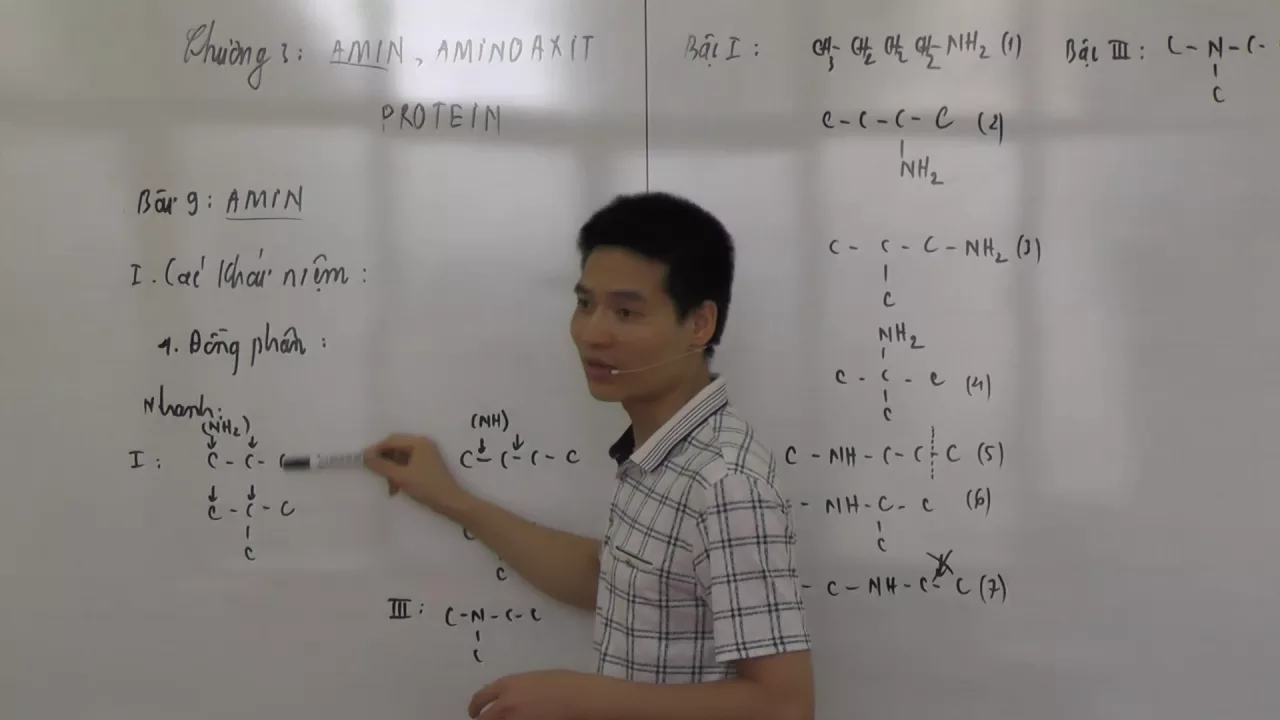 Chương 3: AMIN, AMINOAXIT
PROTEIN
Bài 9: AMIN
I. Các khái niệm:
4. Đồng phân:
Nhanh:
(NH2)
I: C - C -
C - C - C
C
(NH)
C - C - C - C
C
III: C - N - C - C
C
Bậc I: CH3- CH2 CH2 CH2- NH2 (1)
C - C - C - C (2)
NH2
C - C - C - NH2 (3)
C
NH2
C - C - C (4)
C
C - NH - C - C - C (5)
- NH - C - C (6)
C
- C - NH - C - C (7)
Bậc III: C - N - C -
C